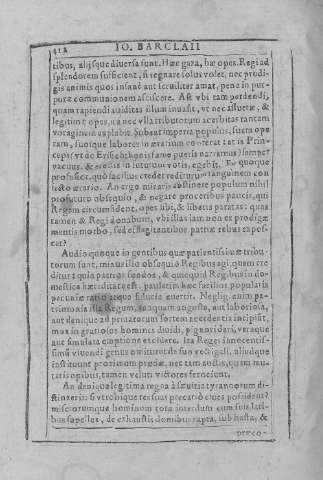 IO. BARCLAII
tibus, aliisque diversa sunt. Hæc gaza, hæ opes. Regi ad
splendorem sufficient, si regnare solus volet, nec prodi-
gis animis quos insanè aut serviliter amat, pene in pur-
puræ communionem asciscere. Ast vbi tam perdendi,
quàm rapiendi auiditas illum inuasit, vt nec assuetæ, &
legitimæ opes, nec vlla tributorum acerbitas tantam
voraginem expleabit. Subeat imperia populus, sueta ope
tam, suosque labores in ærarium conferat
vacuus, & 
profuscet, quò facilius credet rediturum sanguinem con
fisco ærario. An ergo miraris abstinere populum nihil
profuturo obsequio, & negare proceribus paucis, qui
Regem circumsident, opes sibi, & liberta paratas quas
tamen & Regi donabunt, vbi illas iam non ex prodigæ
mentis morbo, sed efflagitantibus patriæ rebus expos-
cet?
Audio quoque in gentibus quæ patientissimæ tribu-
torum sunt, minus illo obsequio Regibus agi, quàm cre
ditur: quia patrios fundos, & quicquid Regibus in do-
mestica hæreditate est, paulatim hæc facilior popularis
pecuniæ ratio atque fiducia euertit. Neglig. enim pa-
trimonia illa Regum, tanquam angusta, aut laboriosa,
aut denique ad priuatorum sortem accedentia incipiunt,
mox in gratiosos homines diuidi, pignerari, verâque
aut simulata emptione excidere. Ita Reges innocentis-
simũ vivendi genus omittunt de suo vectigali, aliudque
instituunt proximum prædæ, nec tam socijs, quàm mu-
tatis opibus, tamen veluti victores ferociunt.
An denique legitima regna à sæuitia tyrannorum di-
stinxeris: si vtrobique res suas precariò ciues possident?
miserorumque hominum tota interdum cum suis lari-
bus supellex, de exhaustis domibus rapta, sub hasta, &
preco-